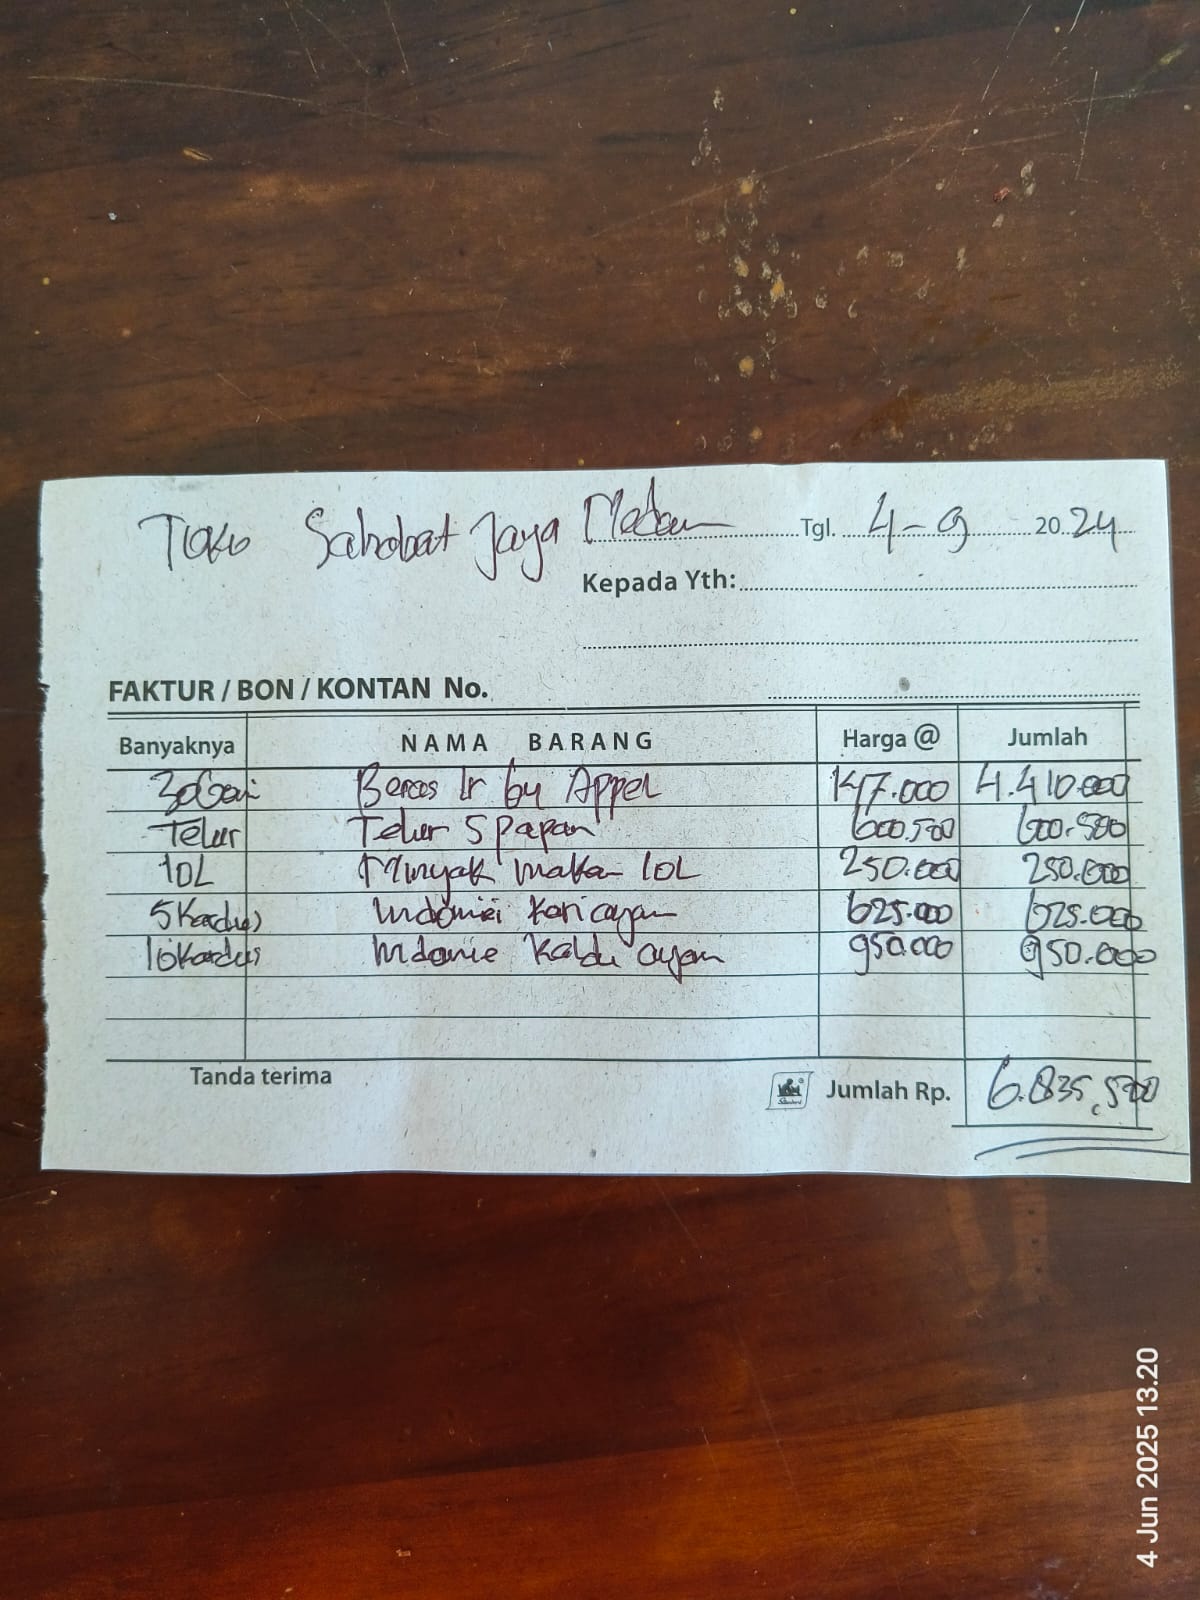 Toko Sahabat Jaya Medan Tgl. 4-9 2024
Kepada Yth:
FAKTUR / BON / KONTAN No.
Banyaknya NAMA BARANG Harga @ Jumlah
30 Beras Ir by Appel 147.000 4.410.000
Telur Telur 5 papan 600.500 600.500
10L Minyak makan 10L 250.000 250.000
5 Kardus Indomie kari ayam 625.000 625.000
10 Kardus Indomie Kaldu ayam 950.000 950.000
Tanda terima Jumlah Rp. 6.835.500
4 Jun 2025 13.20